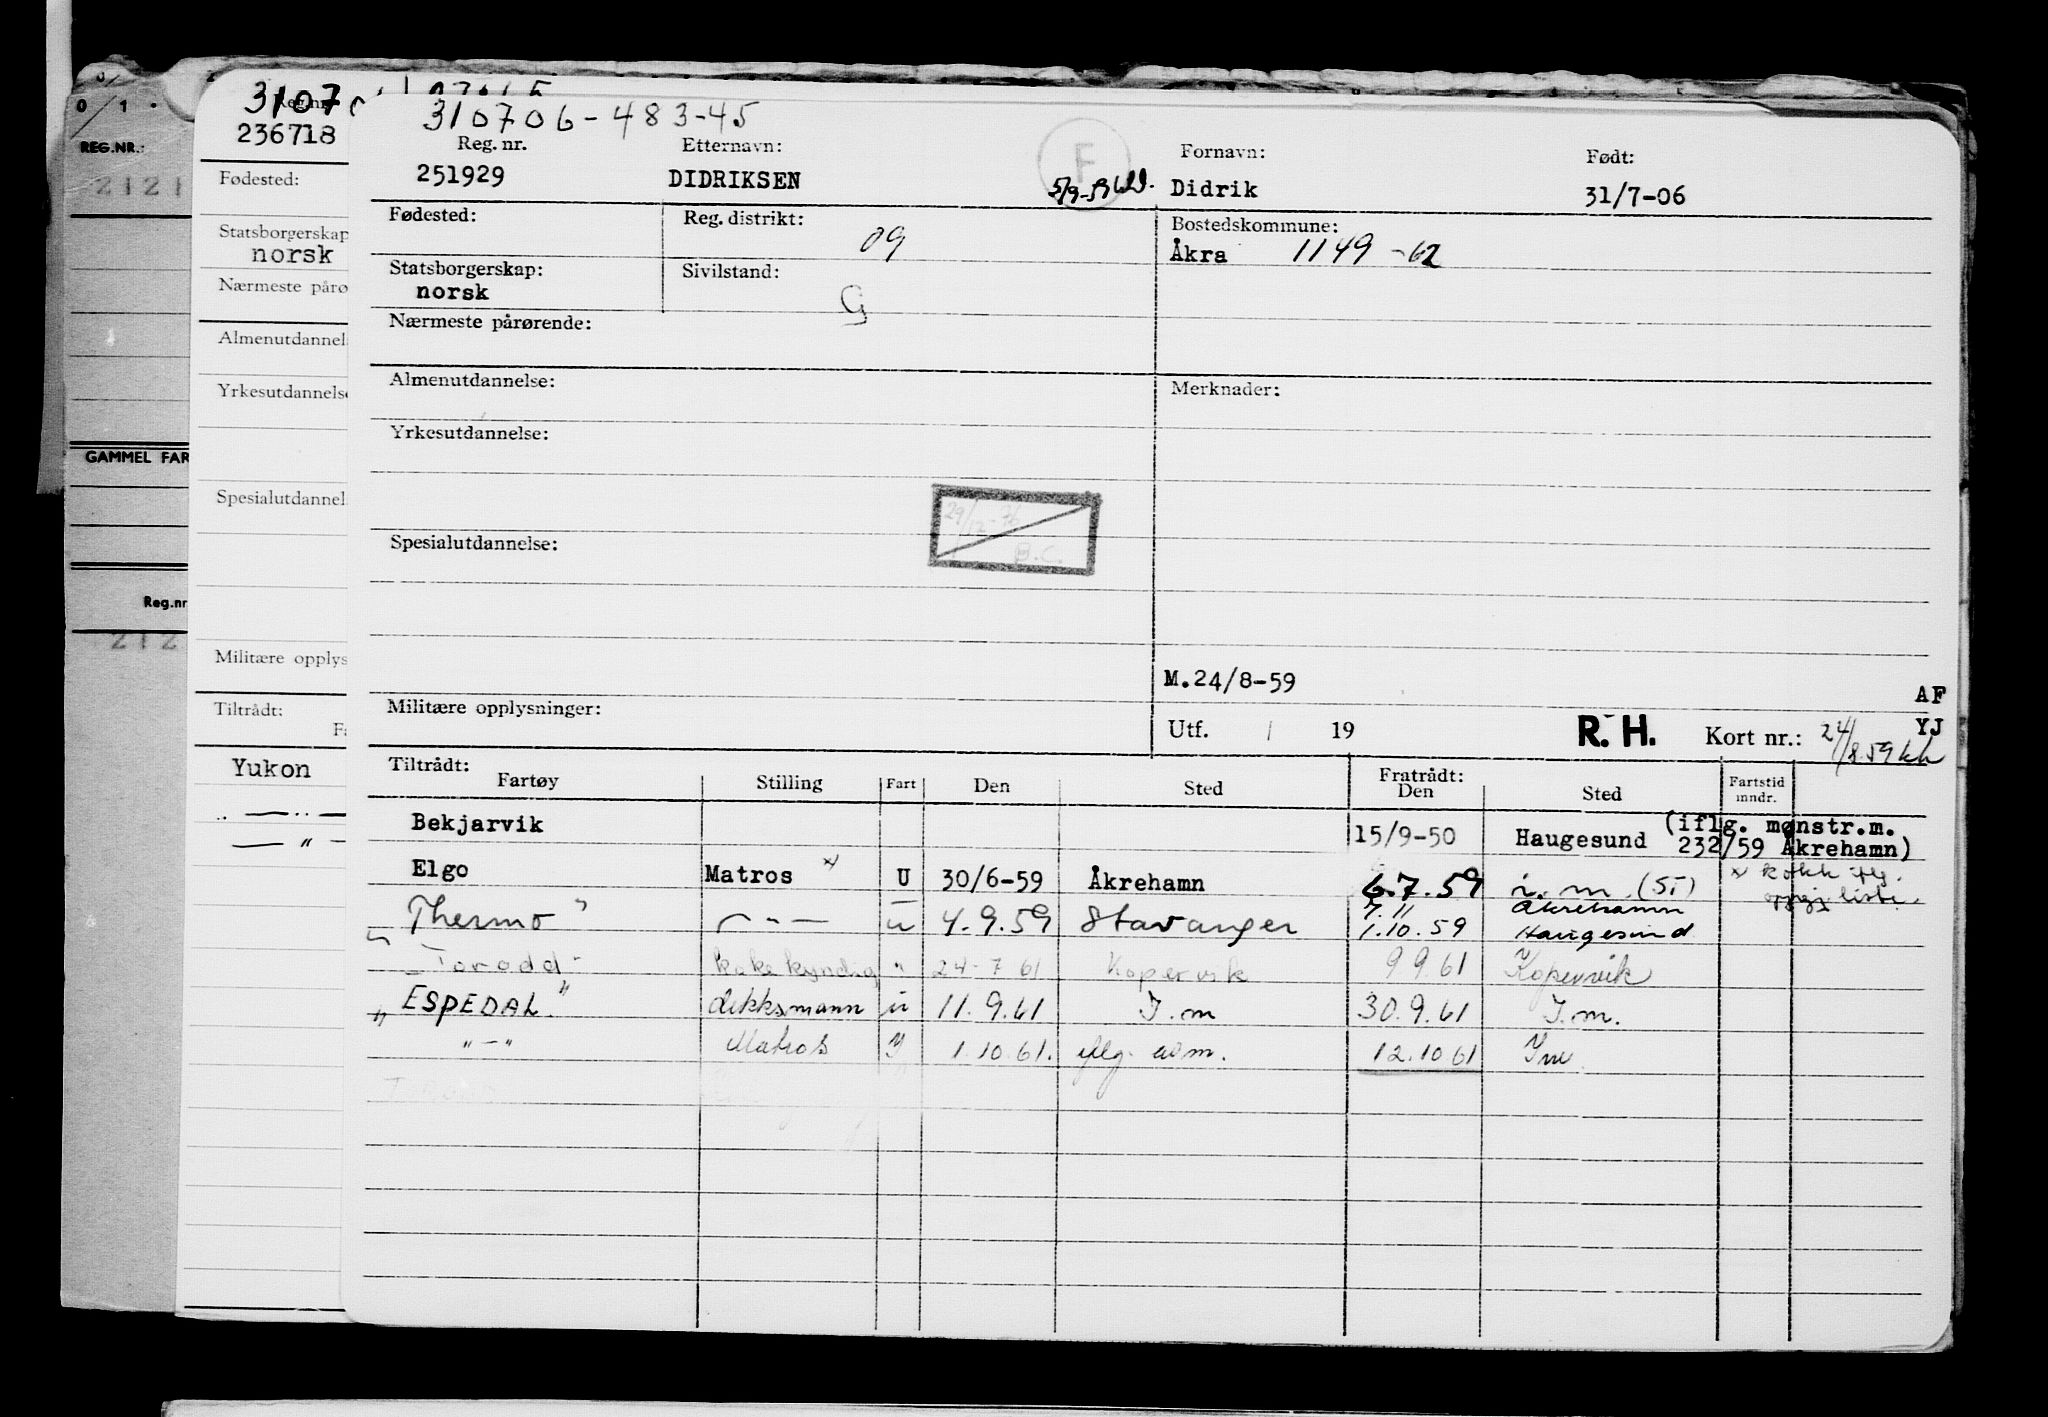 310706-483-45
Reg. nr. Etternavn: Fornavn: Født:
251929 DIDRIKSEN F 5/9-59 Didrik 31/7-06
Fødested: Reg. distrikt: 09 Bostedskommune:
Åkra 1149 -62
Statsborgerskap: Sivilstand:
norsk G
Nærmeste pårørende:
Almenutdannelse: Merknader:
Yrkesutdannelse:
29/12-76
Spesialutdannelse: B.C.
M.24/8-59 AF
Militære opplysninger: Utf. / 19 R.H. Kort nr.: 24/8.59 kh YJ
Tiltrådt: Fratrådt:
Fartøy Stilling Fart Den Sted Den Sted Fartstid mndr.
Bekjarvik 15/9-50 Haugesund (iflg. mønstr.m.
232/59 Åkrehamn)
Elgo Matros x/ U 30/6-59 Åkrehamn 6.7.59 i.m. (ST) x kokk iflg.
liste.
„ Thermo " — " — u 4.9.59 Stavanger 7.11 Åkrehamn
1.10.59 Haugesund
„ Torodd " kokekyndig " 24-7 61 Kopervik 9 9.61 Kopervik
„ ESPEDAL " dekksmann u 11.9.61 I.m 30.9.61 I.m.
" — " Matros 1.10.61. iflg. 12.10 61 I.m
310706
Reg.nr.
236718
Fødested:
Statsborgerskap
norsk
Nærmeste påro
Almenutdannel
Yrkesutdannelse
Spesialutdannel
Militære opplys
Tiltrådt:
Fa
Yukon
.. — .. —
— " —
0/1.
REG.NR.:
2121
GAMMEL FAR
Reg.nr
212